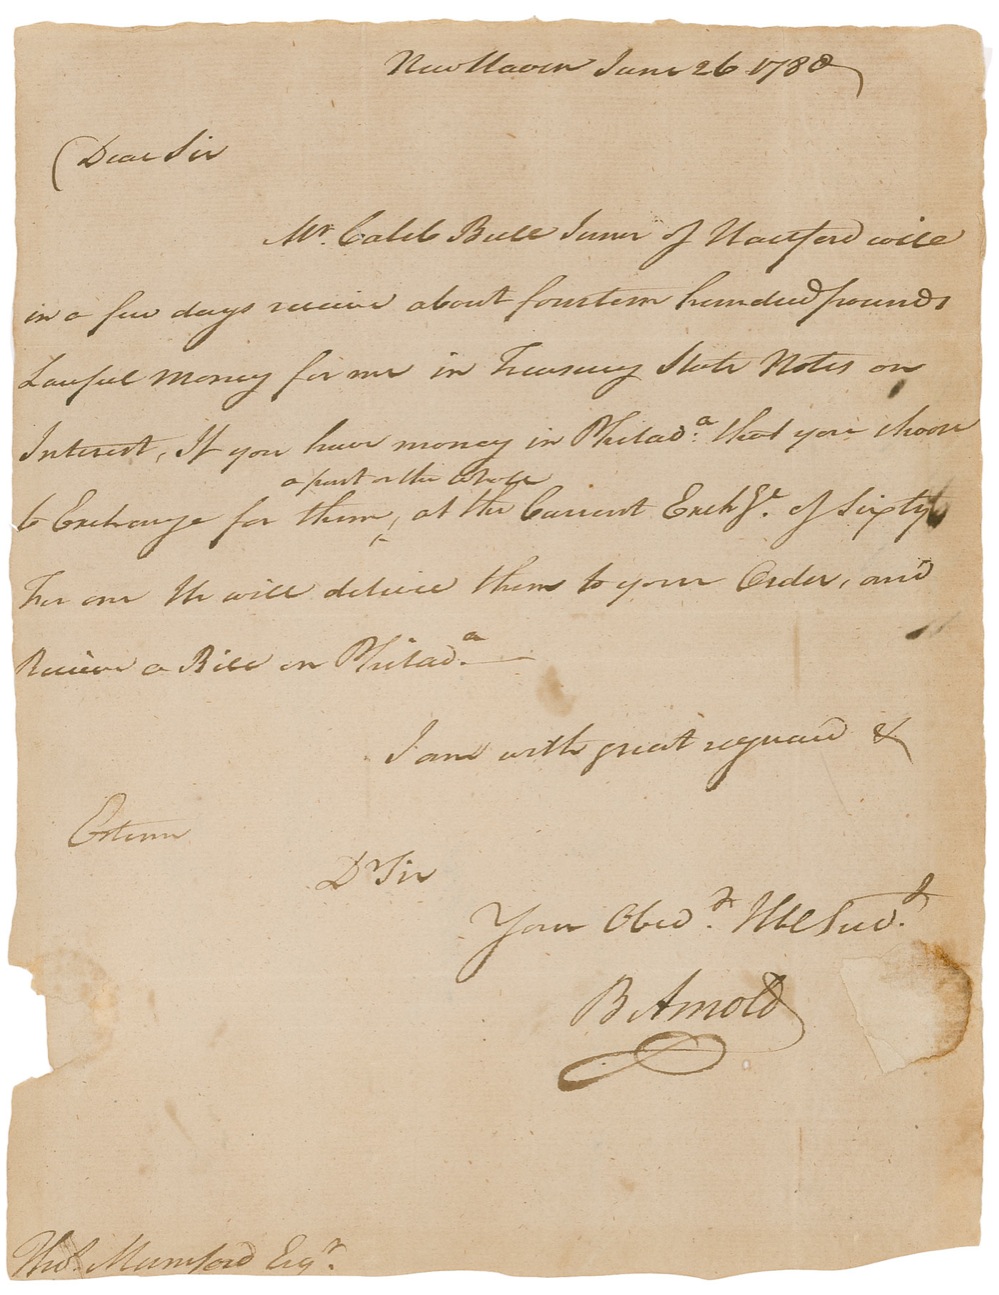 New Haven June 26 1780
Dear Sir
Mr. Caleb Bull Junr of Hartford will
in a few days receive about fourteen hundred pounds
Lawful Money for me in Treasury State Notes on
Interest, If you have money in Philad.a that you choose
a part or the whole
to Exchange for them, at the Current Exchge. of Sixty
For one He will deliver them to your Order, and
Receive a Bill on Philada.
I am with great reguard &
Esteem
Dr Sir
Your Obed.t Hble Serv.t
B Arnold
Thos. Mumford Esqr.